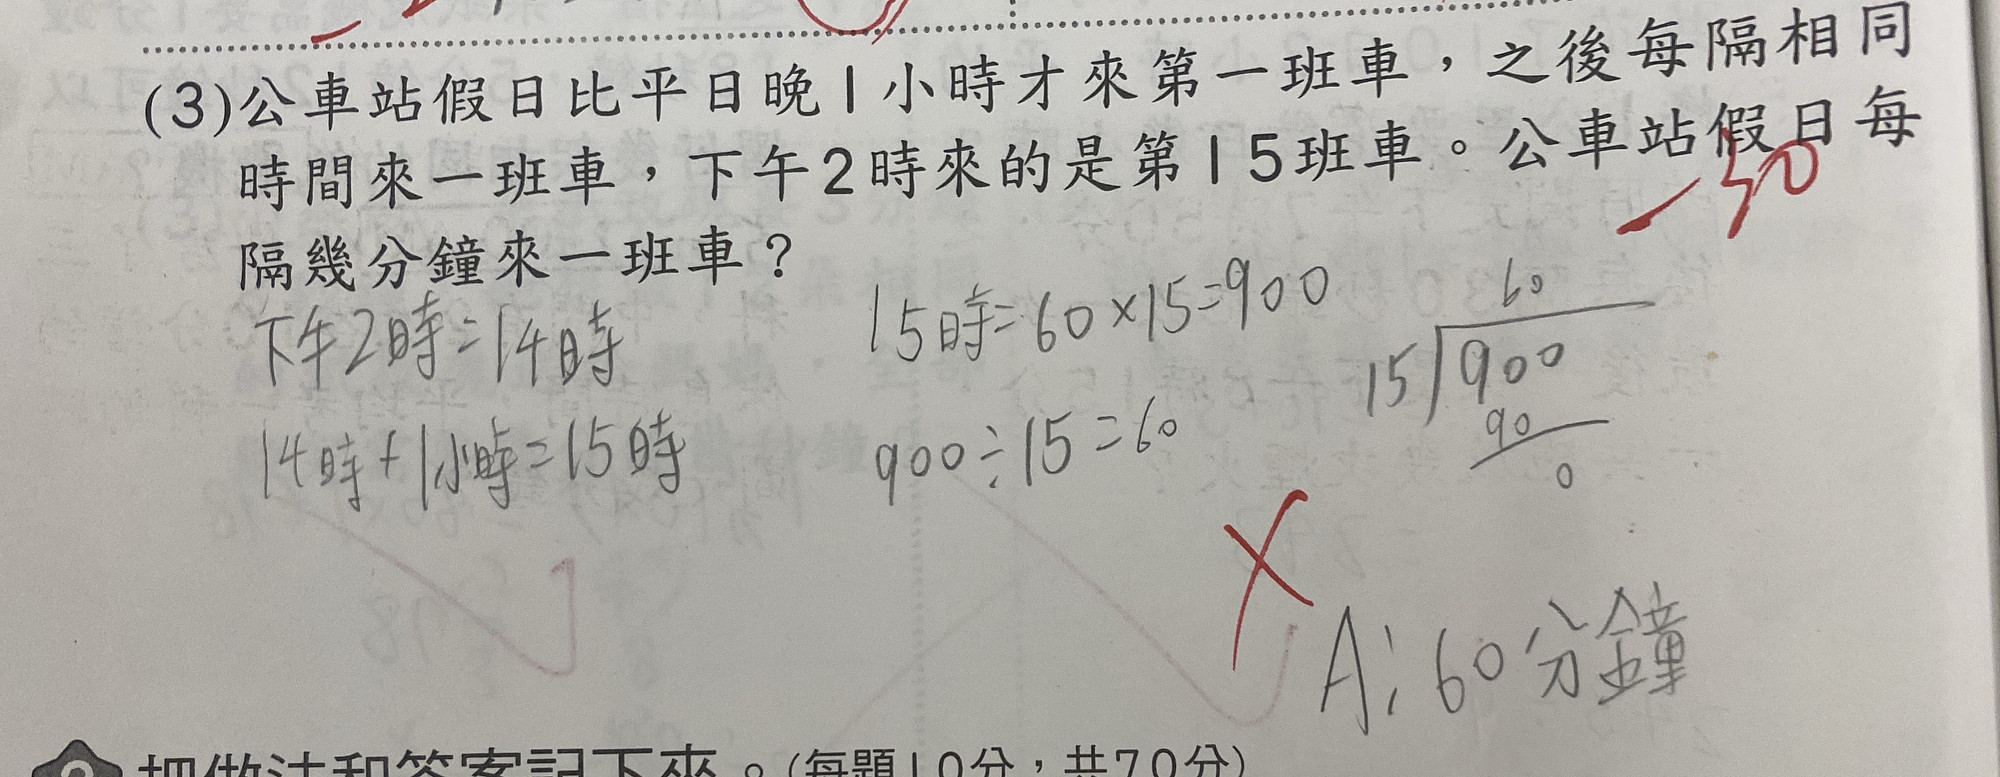 (3)公車站假日比平日晚1小時才來第一班車，之後每隔相同
時間來一班車，下午2時來的是第15班車。公車站假日每
隔幾分鐘來一班車？
-10
下午2時=14時
14時+1小時=15時
15時=60×15=900
900÷15=60
60
15)900
90
0
A:60分鐘
把做法和答案記下來。(每題10分，共70分)